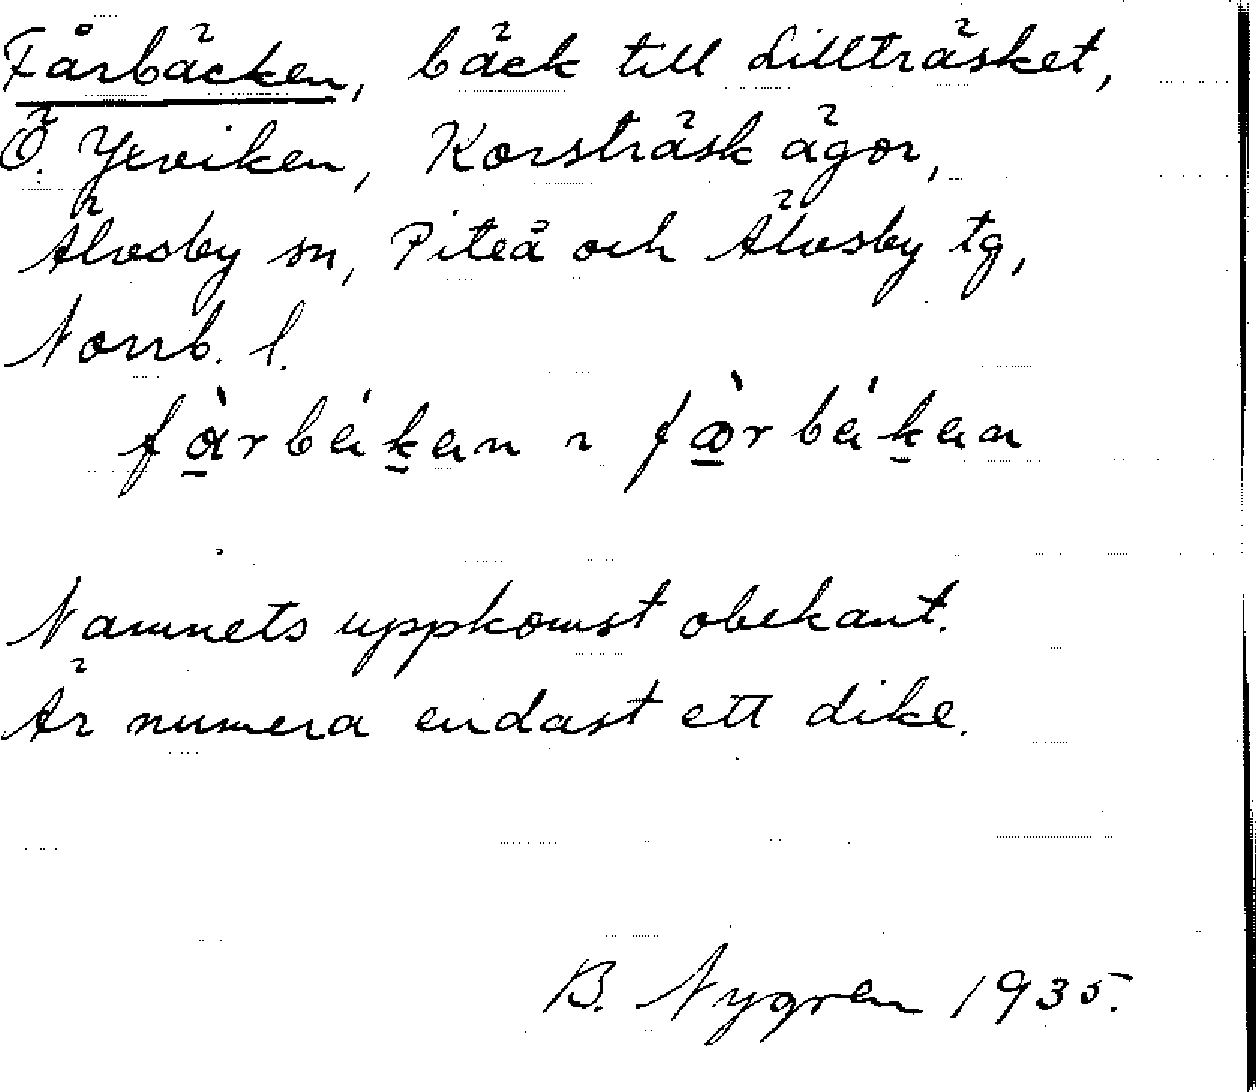 Fårbäcken, bäck till Lillträsket,
Ö. Yxviken, Korsträsk ägor,
Älvsby sn, Piteå och Älvsby tg,
Norrb. l.
fàrbákan ~ fœ̀rbákan
Namnets uppkomst obekant.
Är numera endast ett dike.
B. Nygren 1935.